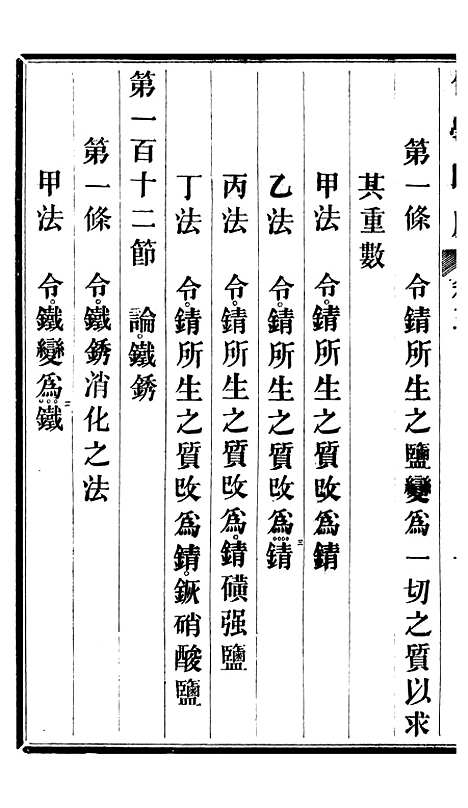 第一條 令錆所生之鹽變爲一切之質以求
其重數
甲法 令錆所生之質改爲錆
乙法 令錆所生之質改爲∘∘∘錆三
丙法 令錆所生之質改爲∘錆磺强鹽
丁法 令錆所生之質改爲∘錆硝酸鹽
第一百十二節 論∘鐵銹
第一條 令∘鐵銹消化之法
甲法 令∘鐵變爲∘∘∘鐵二